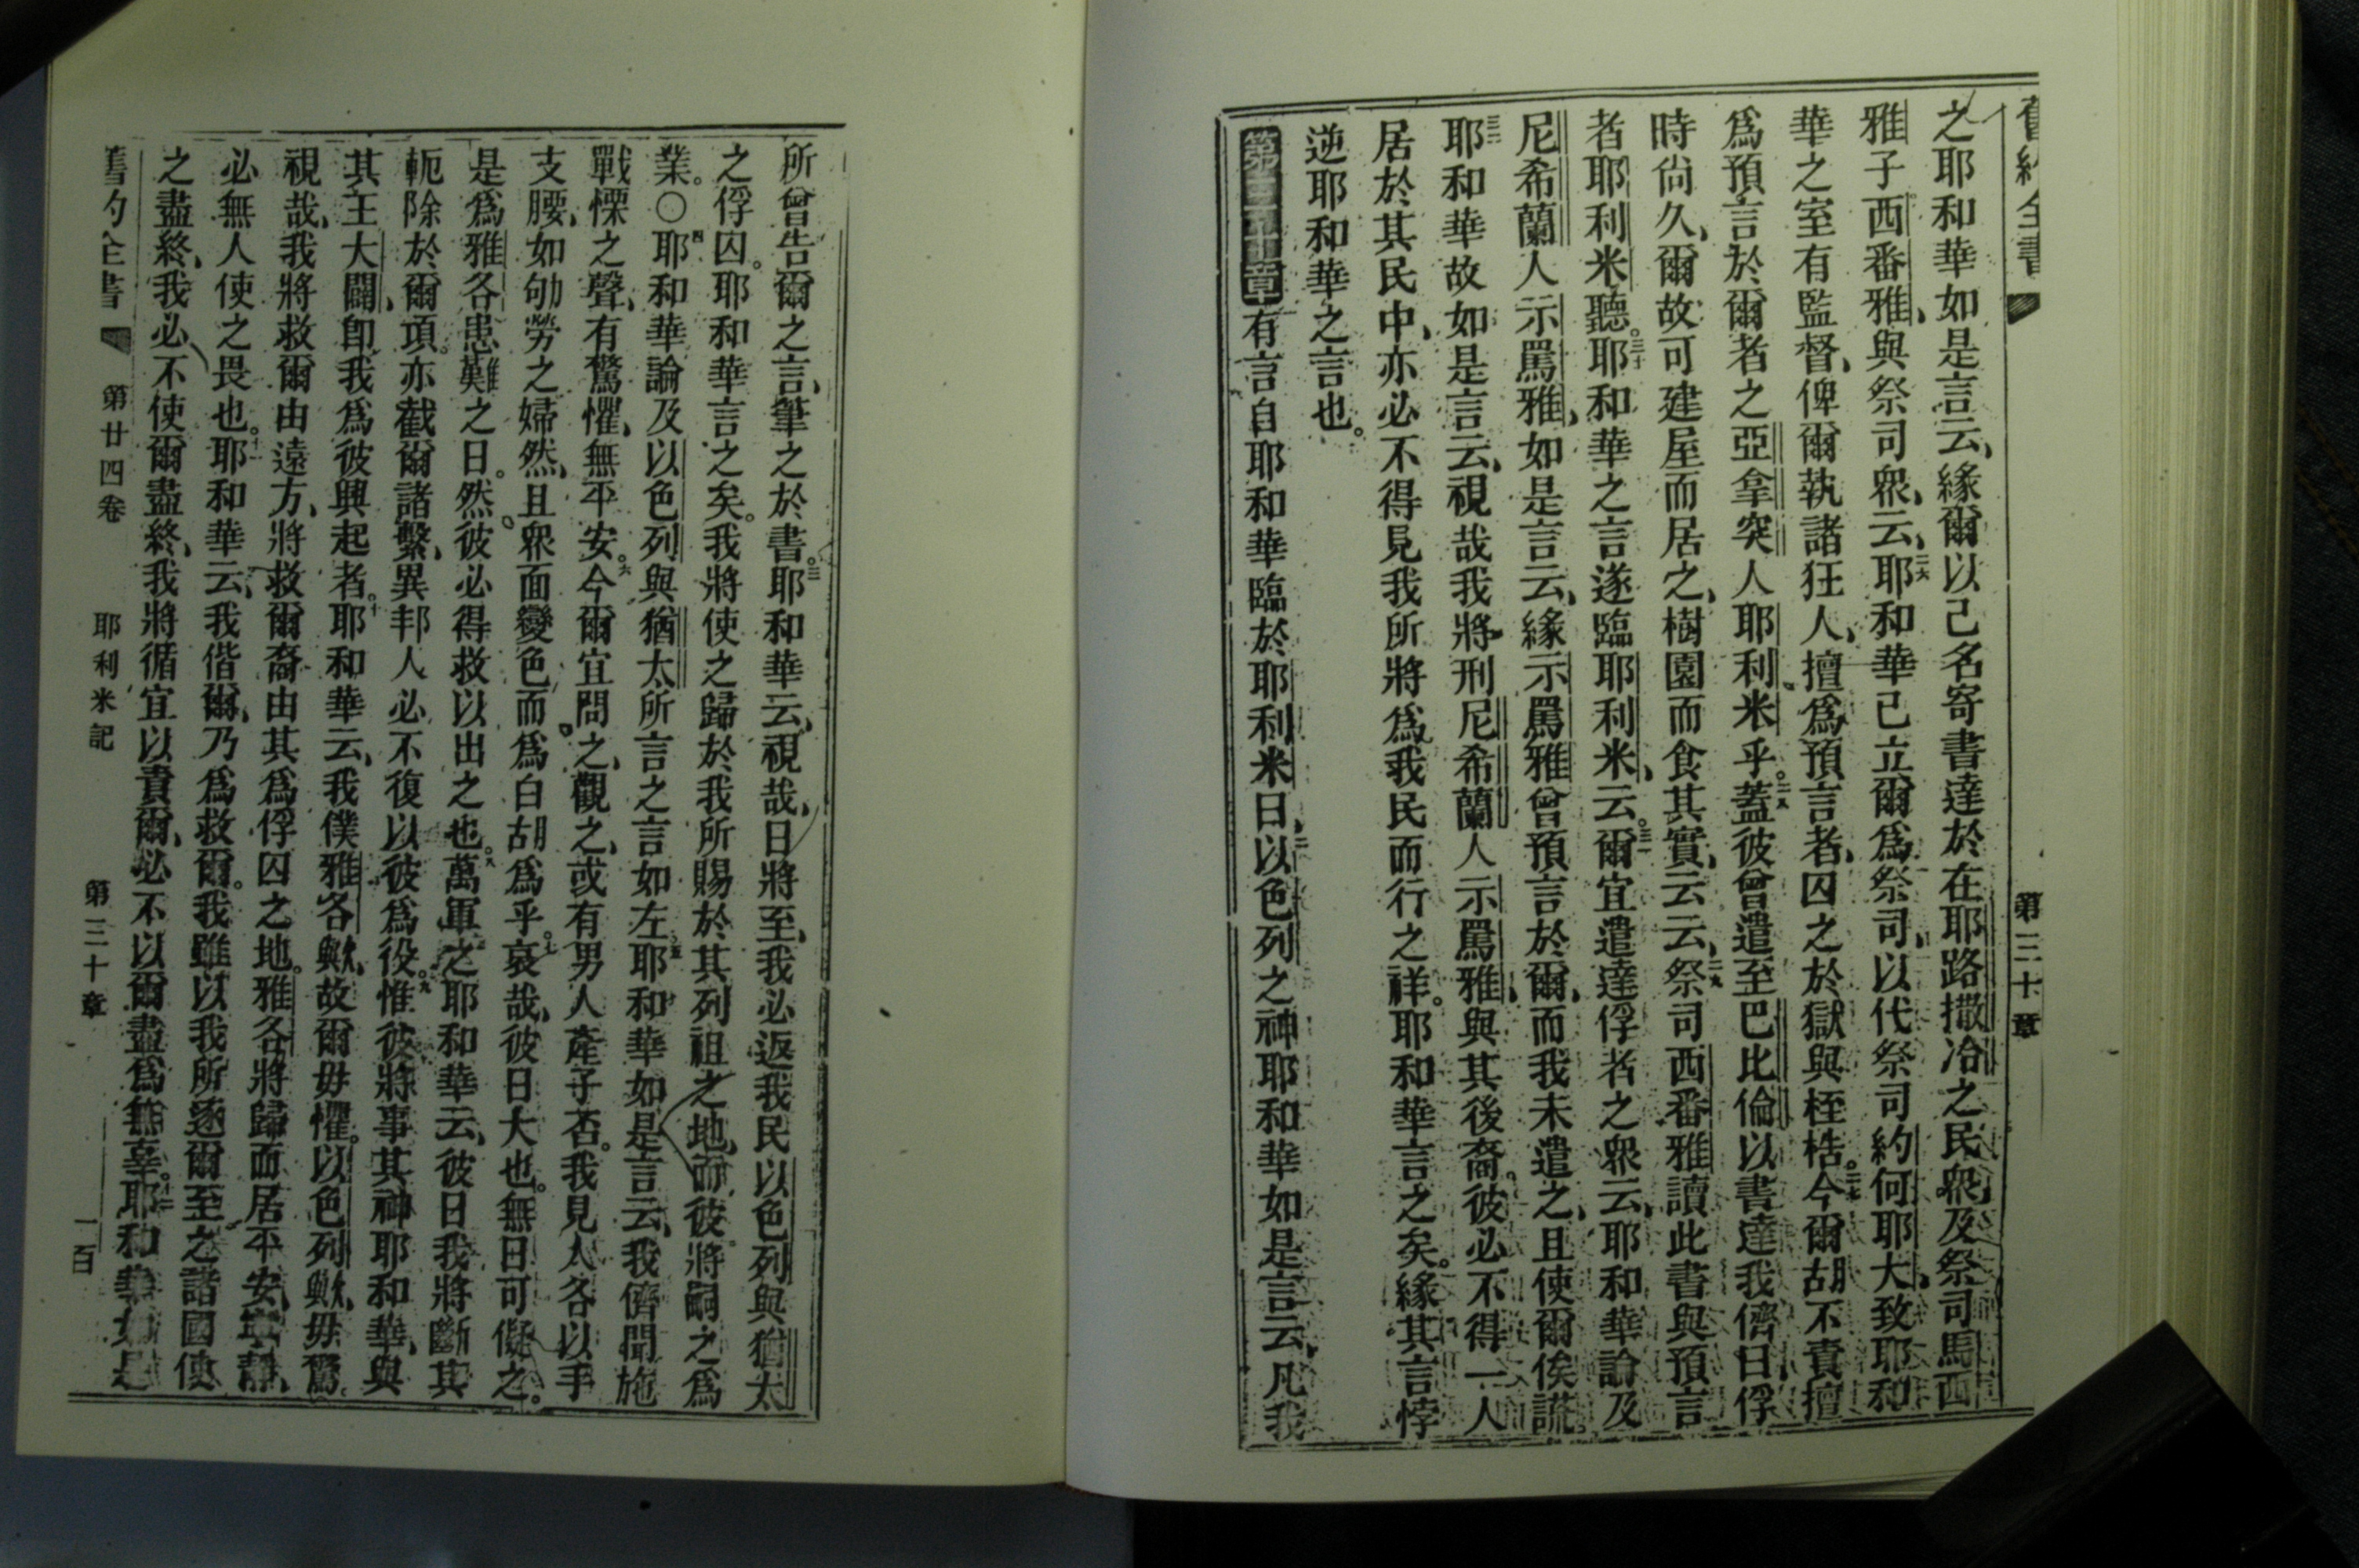 舊約全書
第三十章
之耶和華如是言云、緣爾以己名寄書達於在耶路撒冷之民衆、及祭司馬西
雅子西番雅、與祭司衆、云、二六耶和華已立爾爲祭司、以代祭司約何耶大、致耶和
華之室有監督、俾爾執諸狂人、擅爲預言者、囚之於獄與桎梏。二七今爾胡不責擅
爲預言於爾者之亞拿突人耶利米乎。二八蓋彼曾遣至巴比倫以書達我儕曰、俘
時尙久、爾故可建屋而居之、樹園而食其實、云云、二九祭司西番雅讀此書與預言
者耶利米聽。三十耶和華之言遂臨耶利米、云。三一爾宜遣達俘者之衆云、耶和華論及
尼希蘭人示罵雅、如是言云、緣示罵雅曾預言於爾、而我未遣之、且使爾俟謊。
三二耶和華故如是言云、視哉我將刑尼希蘭人示罵雅、與其後裔。彼必不得一人
居於其民中、亦必不得見我所將爲我民而行之祥。耶和華言之矣。緣其言悖
逆耶和華之言也。
第三十章有言自耶和華臨於耶利米曰、二以色列之神耶和華如是言云、凡我
所曾告爾之言、筆之於書。三耶和華云、視哉、日將至、我必返我民以色列與猶太
之俘囚。耶和華言之矣。我將使之歸於我所賜於其列祖之地、而彼將嗣之爲
業。○四耶和華論及以色列與猶太所言之言如左、五耶和華如是言云、我儕聞施
戰慄之聲、有驚懼、無平安。六今爾宜問之、觀之、或有男人產子否。我見人各以手
支腰、如劬勞之婦然、且衆面變色而爲白胡爲乎。七哀哉、彼日大也。無日可儗之。
是爲雅各患難之日。然彼必得救以出之也。八萬軍之耶和華云、彼日我將斷其
軛除於爾項。亦截爾諸繫、異邦人必不復以彼爲役。九惟彼將事其神耶和華、與
其王大闢、卽我爲彼興起者。十耶和華云、我僕雅各歟、故爾毋懼。以色列歟、毋驚。
視哉、我將救爾由遠方、將救爾裔由其爲俘囚之地。雅各將歸而居平安、寧靜、
必無人使之畏也。十一耶和華云、我偕爾、乃爲救爾。我雖以我所逐爾至之諸國使
之盡終、我必不使爾盡終、我將循宜以責爾、必不以爾盡爲無辜。十二耶和華如是
舊約全書 第廿四卷 耶利米記 第三十章 一百